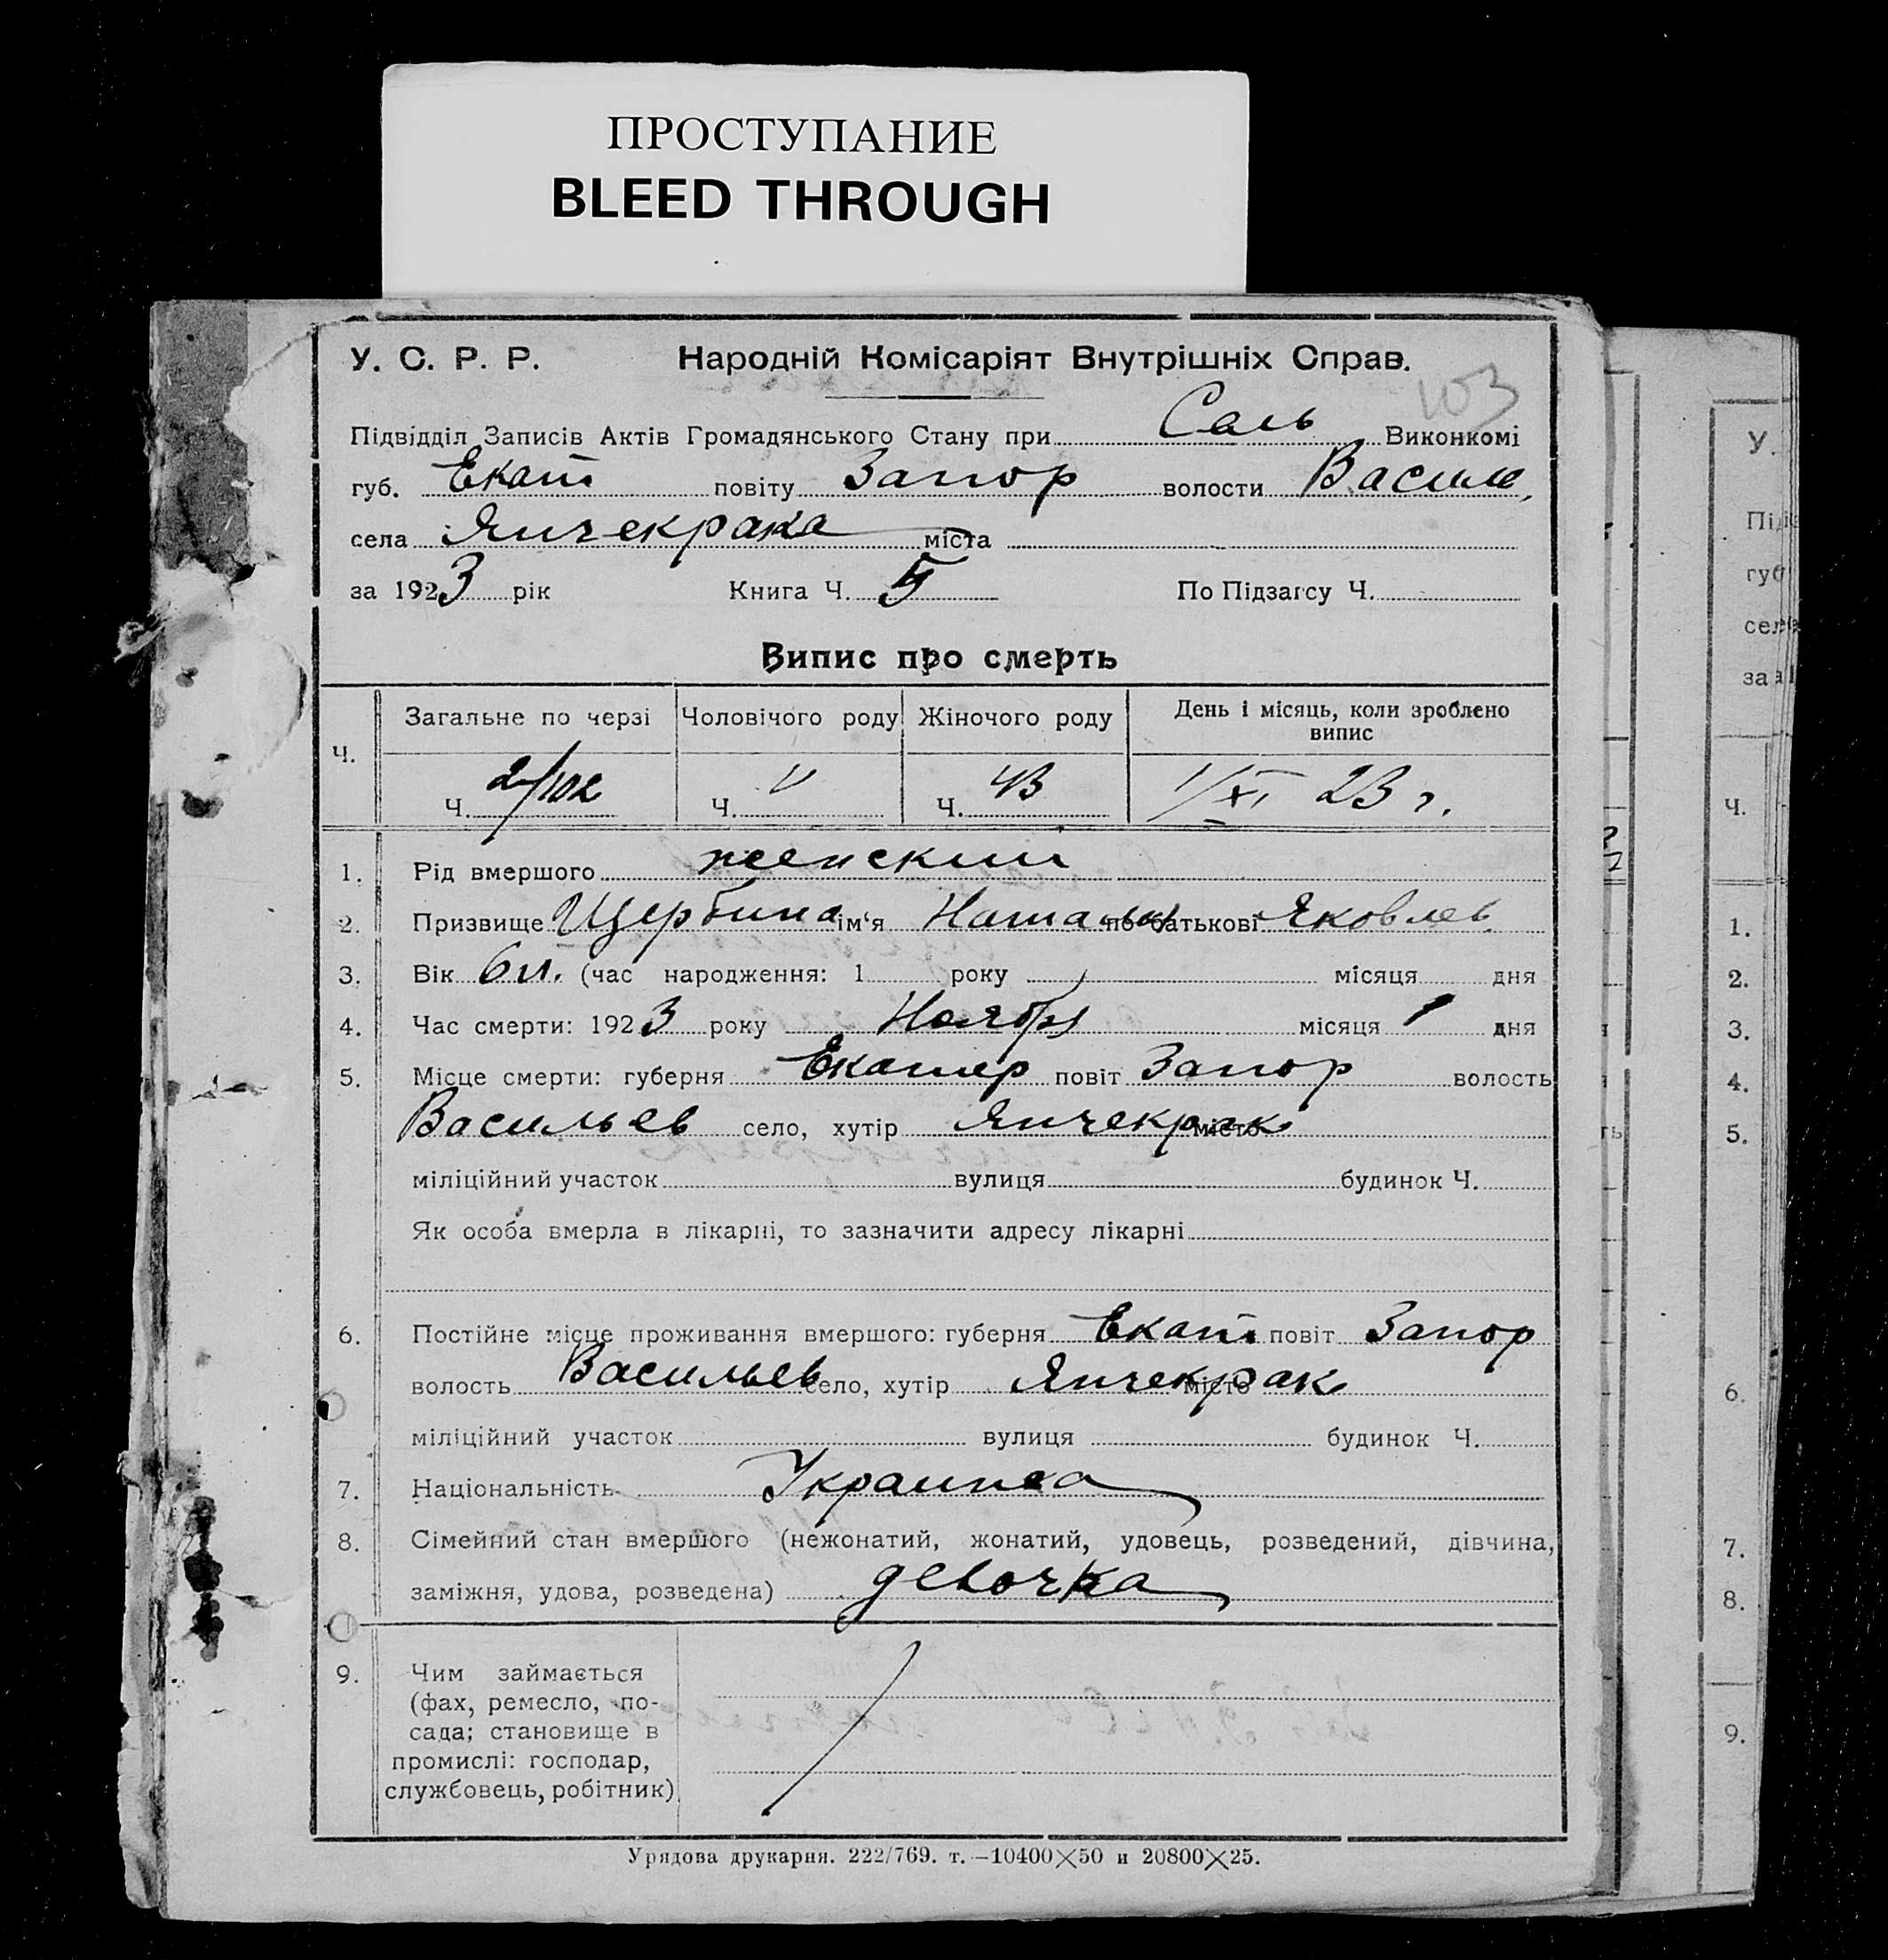 ПРОСТУПАНИЕ
BLEED THROUGH
У. С. Р. Р. Народній Комісаріят Внутрішніх Справ.
103
Підвідділ Записів Актів Громадянського Стану при Сель Виконкомі
губ. Екат повіту Запор волости Васил
села Янчекрака міста
за 1923 рік Книга Ч. 5 По Підзагсу Ч.
Випис про смерть
Ч. Загальне по черзі Чоловічого роду Жіночого роду День і місяць, коли зроблено випис
Ч. 2/102 Ч. Ч. 43 1/XI 23 г.
1. Рід вмершого женский
2. Призвище Щербина ім‘я Наталья по батькові Яковлев
3. Вік 6 л. (час народження: 1 року місяця дня
4. Час смерти: 1923 року Ноября місяця 1 дня
5. Місце смерти: губерня Екатер повіт Запор волость
Васильев село, хутір Янчекрак місто
міліційний участок вулиця будинок Ч.
Як особа вмерла в лікарні, то зазначити адресу лікарні
6. Постійне місце проживання вмершого: губерня Екат повіт Запор
волость Васильев село, хутір Янчекрак місто
міліційний участок вулиця будинок Ч.
7. Національність Украинка
8. Сімейний стан вмершого (нежонатий, жонатий, удовець, розведений, дівчина,
заміжня, удова, розведена) девочка
9. Чим займається
(фах, ремесло, по-
сада; становище в
промислі: господар,
службовець, робітник)
Урядова друкарня. 222/769. т. —10400×50 и 20800×25.
У.
губ
сел
за
Ч.
1.
2.
3.
4.
5.
6.
7.
8.
9.